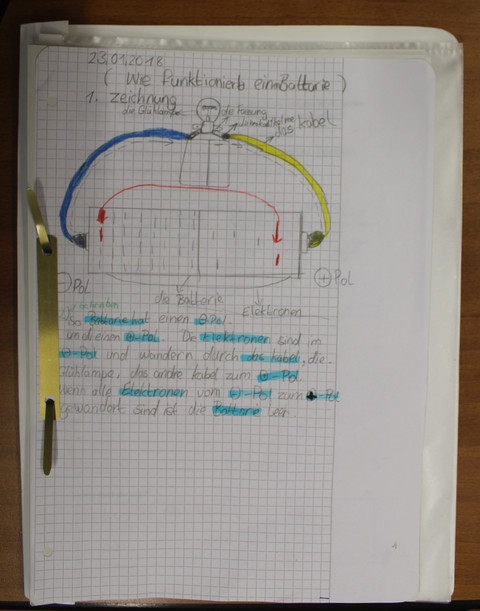 23.01.2018
( Wie funktioniert eine Batterie )
1. Zeichnung
die Glühlampe die Fassung
das Kabel
⊖ Pol ⊕ Pol
die Batterie
Elektronen
2. Schreiben
Batterie hat einen ⊖ Pol
und einen ⊕ - Pol. Die Elektronen sind im
⊖ - Pol und wandern durch das Kabel, die
Glühlampe, das andre Kabel zum ⊕ - Pol.
Wenn alle Elektronen vom ⊖ - Pol zum + Pol
gewandert sind ist die Batterie leer.